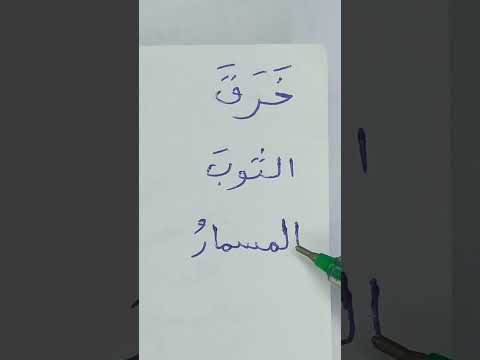 خَرَقَ
الثوبَ
المسمارُ